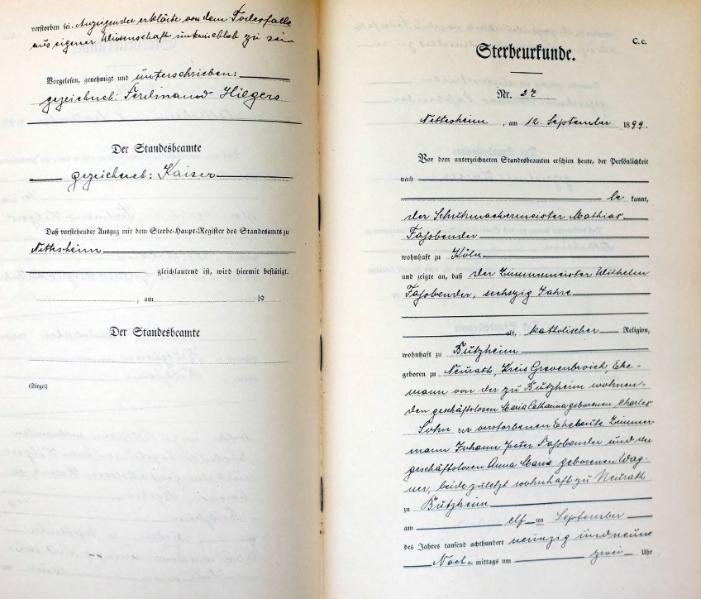 verstorben sei. Anzeigender erklärte von dem Todesfalle
aus eigener Wissenschaft unterrichtet zu sein
Vorgelesen, genehmigt und unterschrieben:
gezeichnet: Ferdinand Hilgers
Der Standesbeamte
gezeichnet: Kaiser
Daß vorstehender Auszug mit dem Sterbe-Haupt-Register des Standesamts zu
Nettesheim
gleichlautend ist, wird hiermit bestätigt.
, am 19
Der Standesbeamte
(Siegel)
C. c.
Sterbeurkunde.
Nr. 27
Nettesheim, am 12. September 1899.
Vor dem unterzeichneten Standesbeamten erschien heute, der Persönlichkeit
nach
be kannt,
der Schuhmachermeister Mathias
Faßbender
wohnhaft zu Köln
und zeigte an, daß der Zimmermeister Wilhelm
Faßbender, sechszig Jahre
alt, katholischer Religion,
wohnhaft zu Bützheim
geboren zu Neurath, Kreis Grevenbroich, Ehe-
mann von der zu Bützheim wohnen-
den geschäftslosen Maria Catharina geborenen Charles
Sohn der verstorbenen Eheleute Zimmer
mann Johann Peter Faßbender und der
geschäftslosen Anna Maria geborenen Wag-
ner, beide zuletzt wohnhaft zu Neurath
zu Bützheim
am elf ten September
des Jahres tausend achthundert neunzig und neun
Nach mittags um zwei Uhr